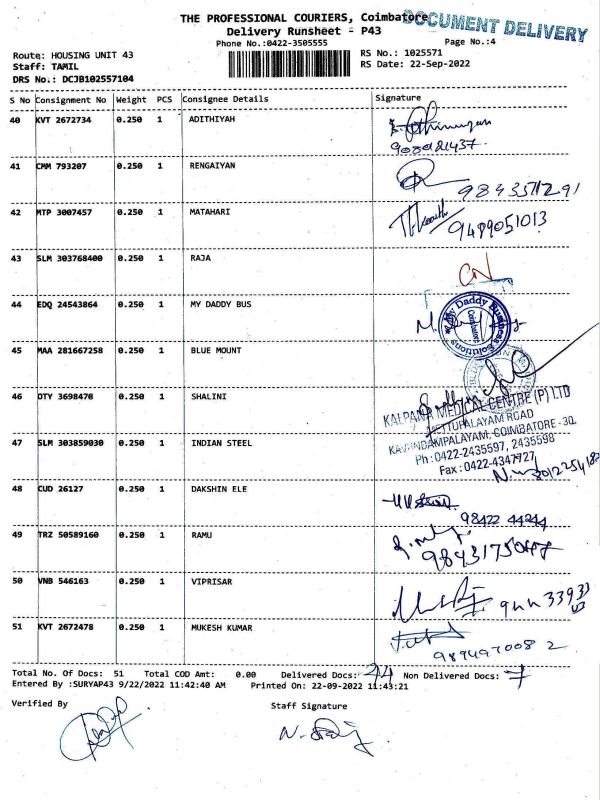 THE PROFESSIONAL COURIERS, Coimbatore
DOCUMENT DELIVERY
Delivery Runsheet - P43
Phone No.:0422-3505555
Page No.:4
Route: HOUSING UNIT 43
RS No.: 1025571
Staff: TAMIL
RS Date: 22-Sep-2022
DRS No.: DCJB102557104
S No Consignment No Weight PCS Consignee Details Signature
40 KVT 2672734 0.250 1 ADITHIYAH
41 CMM 793207 0.250 1 RENGAIYAN
42 MTP 3007457 0.250 1 MATAHARI
9489051013
43 SLM 303768400 0.250 1 RAJA
CN
44 EDQ 24543864 0.250 1 MY DADDY BUS
My Daddy Business Solutions
Coimbatore
45 MAA 281667258 0.250 1 BLUE MOUNT
46 OTY 3698470 0.250 1 SHALINI
KALPANA MEDICAL CENTRE (P) LTD
METTUPALAYAM ROAD
47 SLM 303859030 0.250 1 INDIAN STEEL
KAVUNDAMPALAYAM, COIMBATORE - 30.
Ph : 0422-2435597, 2435598
Fax : 0422-4347727
48 CUD 26127 0.250 1 DAKSHIN ELE
98422 44244
49 TRZ 50589160 0.250 1 RAMU
50 VNB 546163 0.250 1 VIPRISAR
51 KVT 2672478 0.250 1 MUKESH KUMAR
9894970082
Total No. Of Docs: 51 Total COD Amt: 0.00 Delivered Docs: 44 Non Delivered Docs: 7
Entered By :SURYAP43 9/22/2022 11:42:40 AM Printed On: 22-09-2022 11:43:21
Verified By Staff Signature